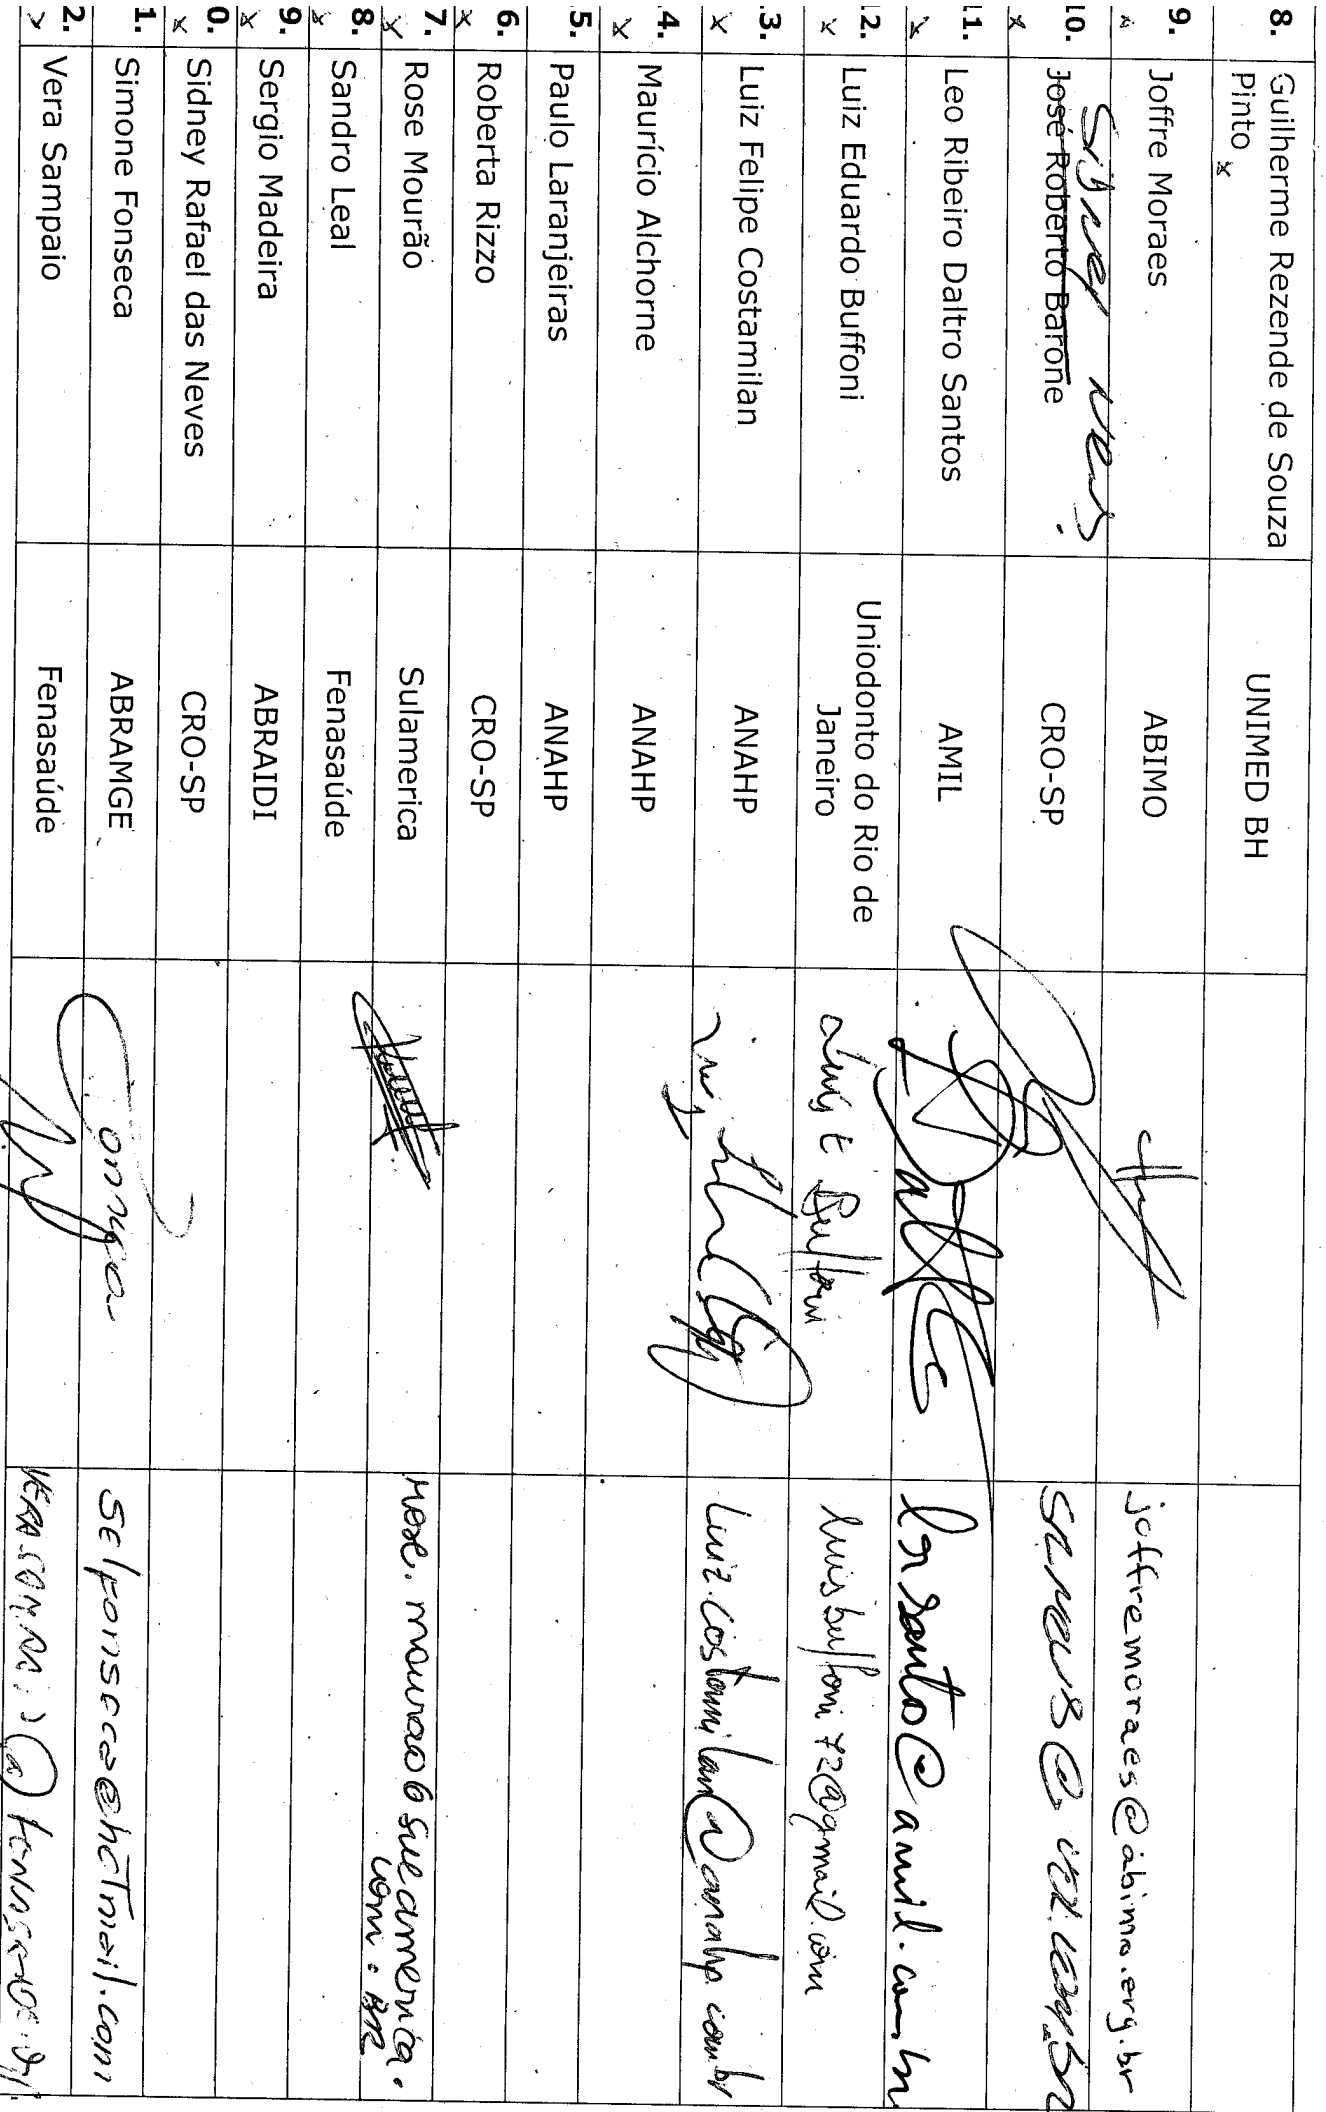 8. Guilherme Rezende de Souza UNIMED BH
Pinto x
9. Joffre Moraes ABIMO joffremoraes@abimo.org.br
x
Sidney Neves.
10. José Roberto Barone CRO-SP
x
11. Leo Ribeiro Daltro Santos AMIL lrsanto@amil.com.br
x
12. Luiz Eduardo Buffoni Uniodonto do Rio de Janeiro Luis E Buffoni luisbuffoni72@gmail.com
x
13. Luiz Felipe Costamilan ANAHP luiz.costamilan@anahp.com.br
x
4. Maurício Alchorne ANAHP
x
5. Paulo Laranjeiras ANAHP
6. Roberta Rizzo CRO-SP
x
7. Rose Mourão Sulamerica rose.mourao@sulamerica.
x com.BR
8. Sandro Leal Fenasaúde
x
9. Sergio Madeira ABRAIDI
x
0. Sidney Rafael das Neves CRO-SP
x
1. Simone Fonseca ABRAMGE selfonseca@hotmail.com
2. Vera Sampaio Fenasaúde